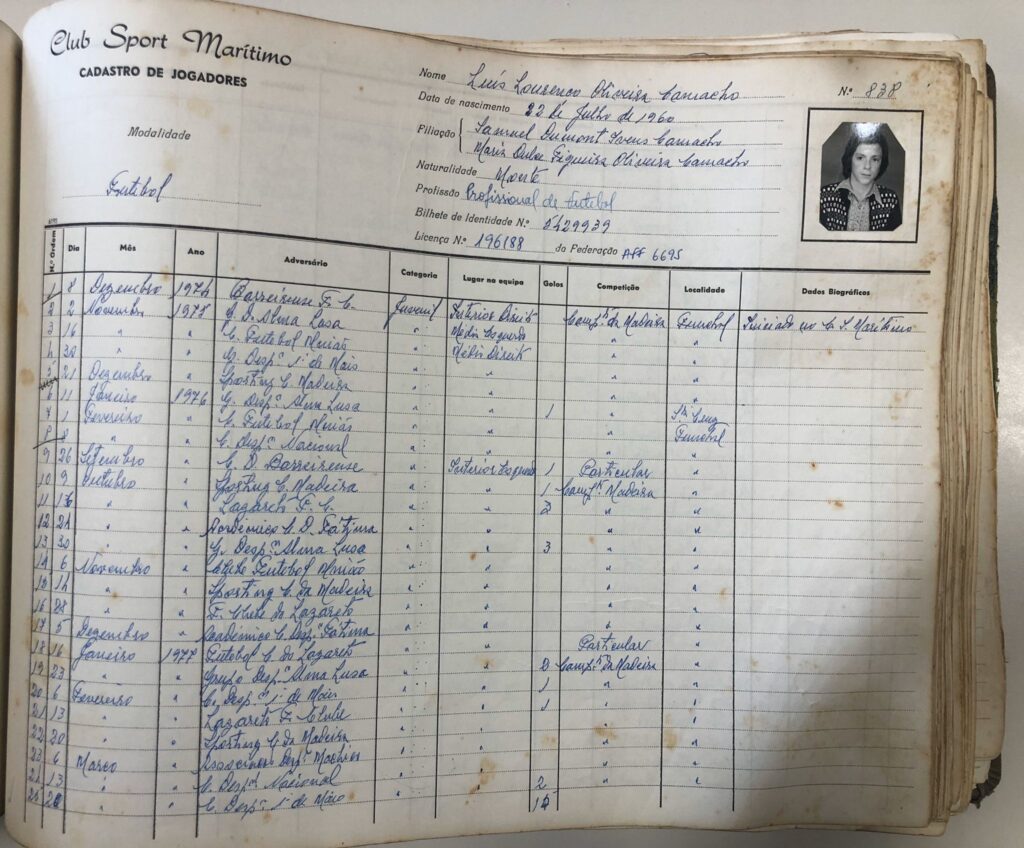 Club Sport Marítimo
CADASTRO DE JOGADORES
Modalidade
Futebol
Nome Luís Lourenco Oliveira Camacho
N.º 838
Data de nascimento 22 de Julho de 1960
Filiação Samuel Dumont Ivens Camacho
Maria Dulce Figueira Oliveira Camacho
Naturalidade Monte
Profissão Profissional de Futebol
Bilhete de Identidade N.º 5429939
Licença N.º 196188 da Federação AFF 6695
N.º Ordem Dia Mês Ano Adversário Categoria Lugar na equipa Golos Competição Localidade Dados Biográficos
1 8 Dezembro 1974 Barreirense F. C.
2 2 Novembro 1975 G. D. Alma Lusa Juvenil Interior Direito Campº da Madeira Funchal Iniciado no C. S. Marítimo
3 16 " " C. Futebol União " Médio Esquerdo " "
4 30 " " G. Despº 1º de Maio " Médio Direito " "
5 21 Dezembro " Sporting C. Madeira " " " "
6 11 Janeiro 1976 G. Despº Alma Lusa " " " "
7 1 Fevereiro " C. Futebol União " " 1 " Stª Cruz
8 8 " " C. Despº Nacional " " " Funchal
9 26 Setembro " G. D. Barreirense " Interior Esquerdo 1 Particular "
10 9 Outubro " Sporting C. Madeira " " 1 Campº Madeira "
11 16 " " Lazareto F. C. " " 2 " "
12 24 " " Académico C. D. Fátima " " " "
13 30 " " G. Despº Alma Lusa " " 3 " "
14 6 Novembro " Clube Futebol União " " " "
15 14 " " Sporting C. da Madeira " " " "
16 28 " " F. Clube do Lazareto " " " "
17 5 Dezembro " Académico C. Despº Fátima " " " "
18 16 Janeiro 1977 Futebol C. do Lazareto " " Particular "
19 23 " " Grupo Despº Alma Lusa " " 2 Campº da Madeira "
20 6 Fevereiro " C. Despº 1º de Maio " " 1 " "
21 13 " " Lazareto F. Clube " " 1 " "
22 20 " " Sporting C. da Madeira " " " "
23 6 Março " Associação Despº Machico " " " "
24 13 " " C. Despº Nacional " " 2 " "
25 " " C. Despº 1º de Maio " " " "